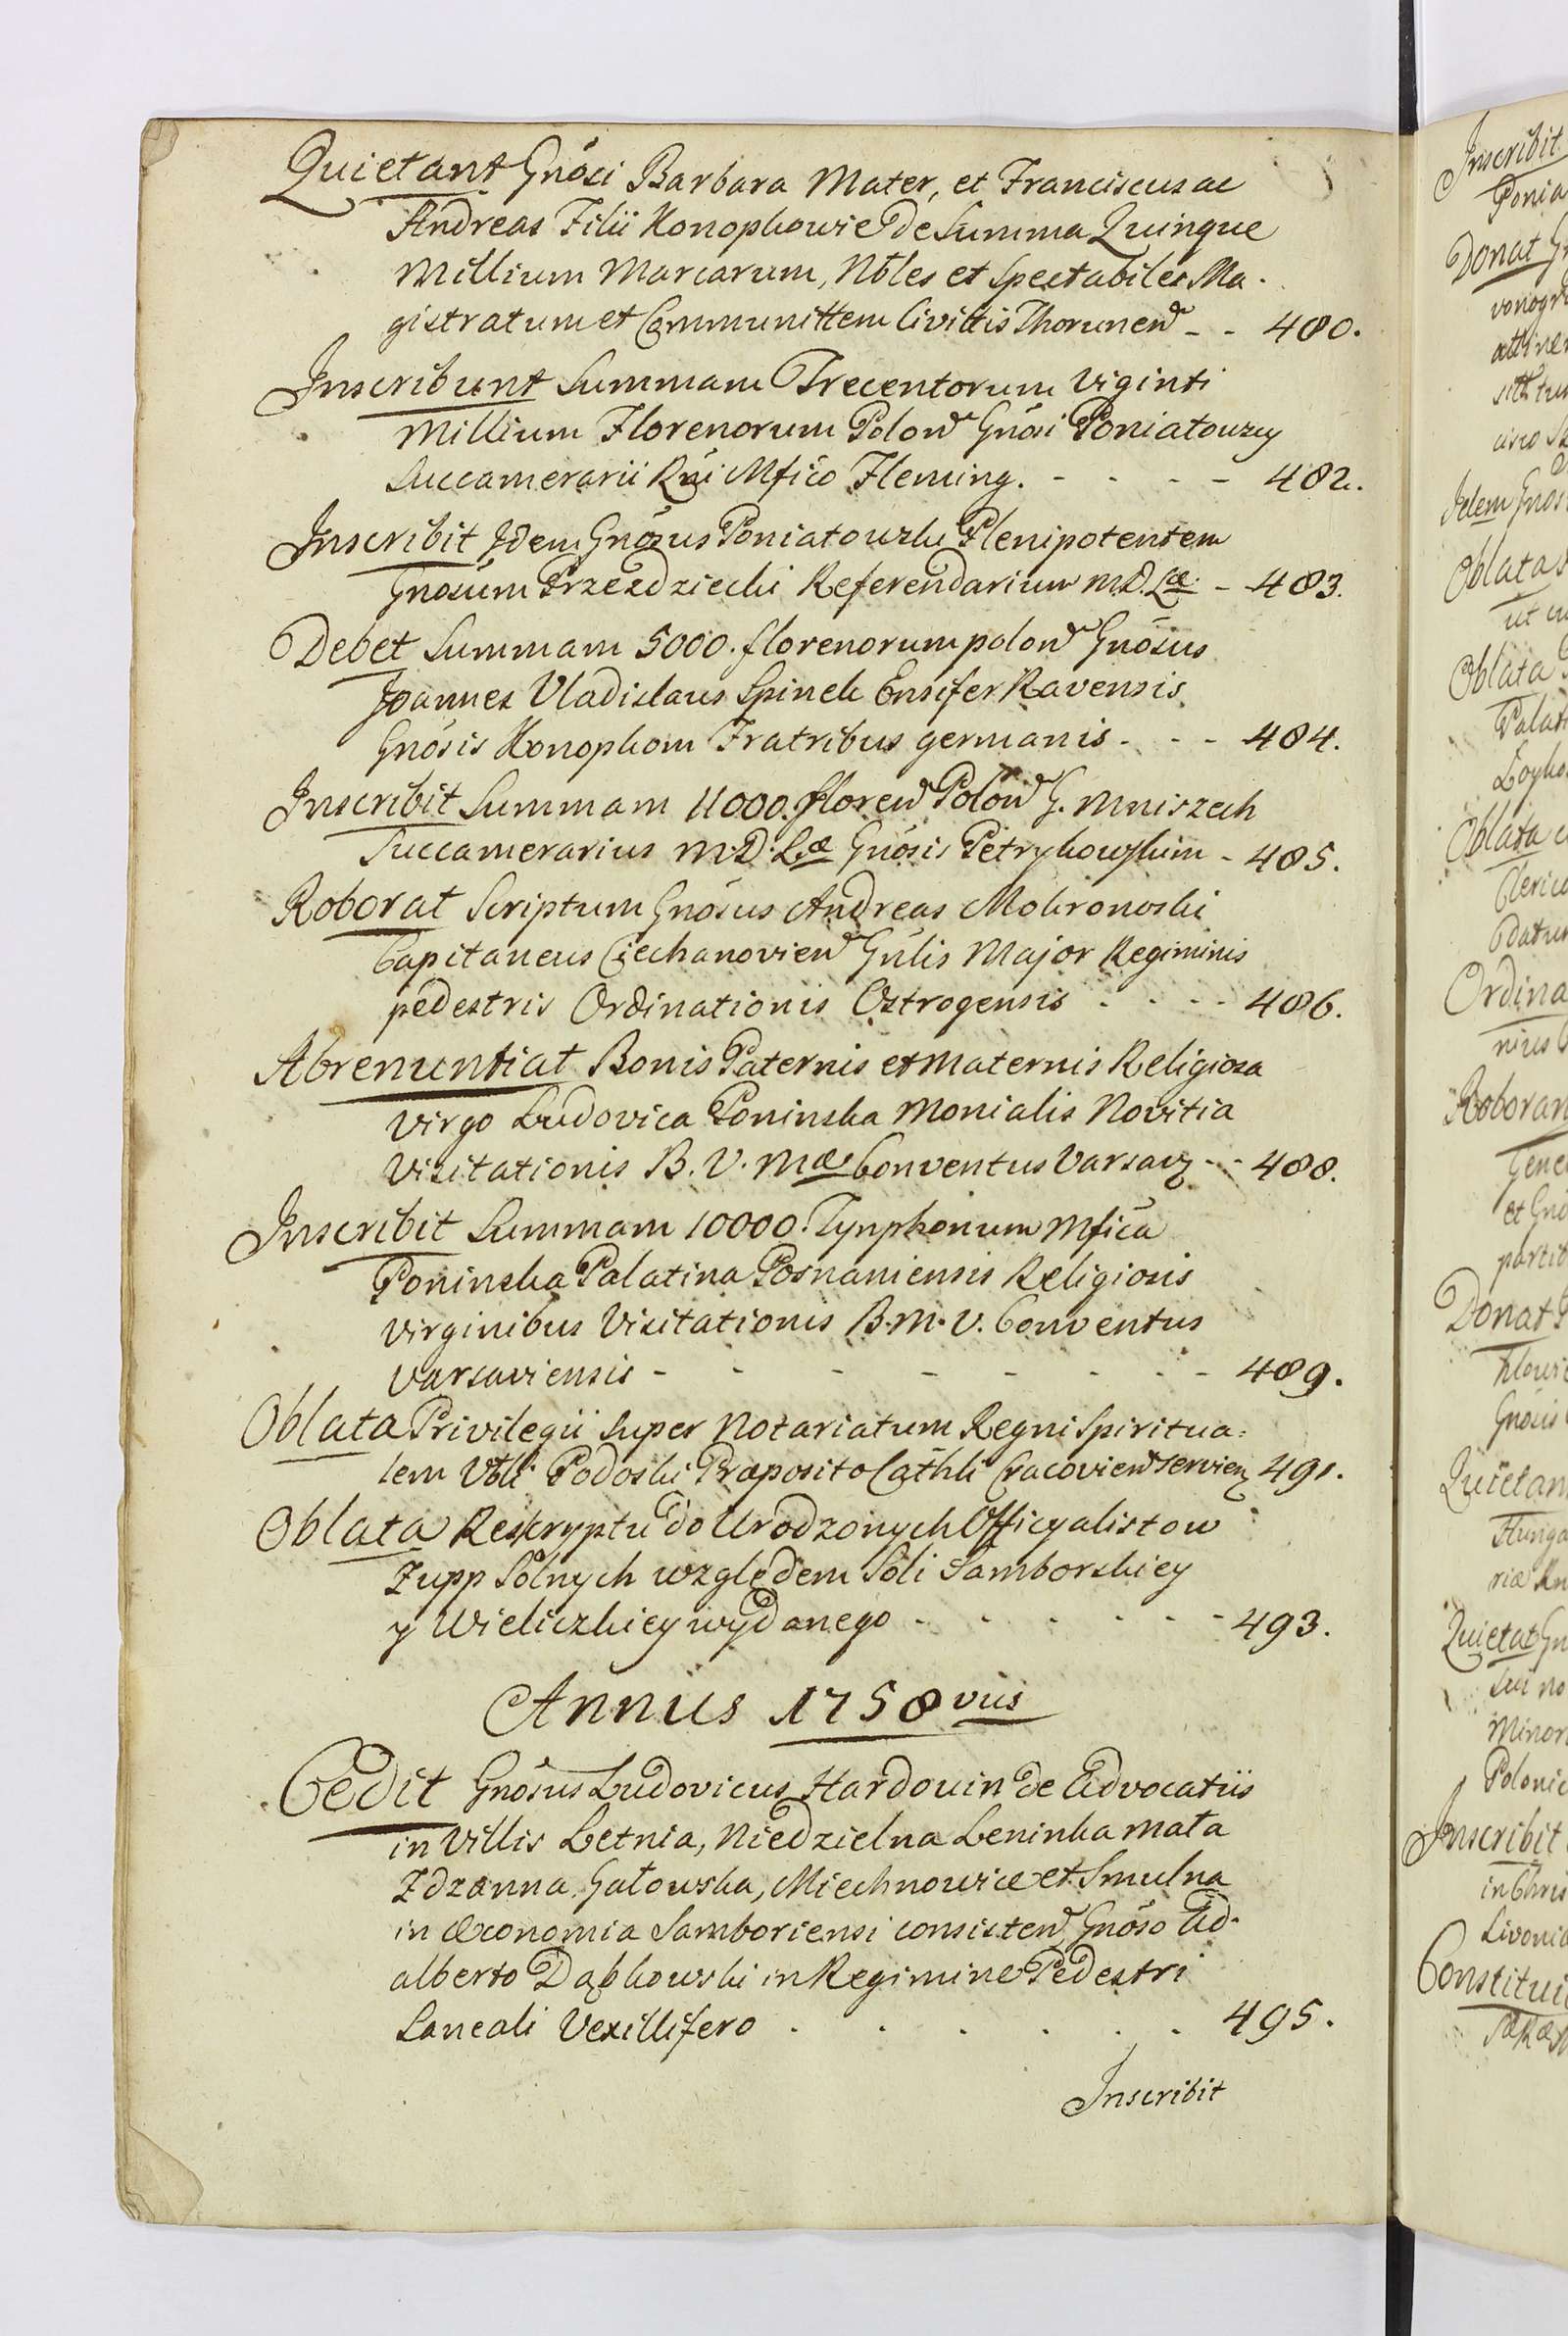 Quietant Gnôsi Barbara Mater, et Franciscus ac
Andreas Filii Konopkowie de Summa Quinque
Millium Marcarum, Nbles et Spectabiles Ma-
gistratum et Communittem Civittis Thorunen - - 480.
Inscribunt Summam Trecentorum Viginti
Millium Florenorum Polon Gnôsi Poniatowscy
Succamerarii Rni Mfico Fleming. - - - - 482.
Inscribit Idem Gnôsus Poniatowski Plenipotentem
Gnôsum Przezdziecki Referendarium M.D.Læ. - 483.
Debet Summam 5000. florenorum polon Gnôsus
Joannes Vladislaus Spinek Ensifer Ravensis
Gnôsis Konopkom Fratribus germanis - - - 484.
Inscribit Summam 11000. floren Polon G. Mniszech
Succamerarius M.D.Læ Gnôsis Petrykowskim - 485.
Roborat Scriptum Gnôsus Andreas Mokronoski
Capitaneus Ciechanovien Gnlis Major Regiminis
pedestris Ordinationis Ostrogensis - - - - 486.
Abrenuntiat Bonis Paternis et Maternis Religiosa
Virgo Ludovica Poninska Monialis Novitia
Visitationis B. V. Mæ Conventus Varsav - - 488.
Inscribit Summam 10000. Tynphonum Mfica
Poninska Palatina Posnaniensis Religiosis
Virginibus Visitationis B. M. V. Conventus
Varsaviensis - - - - - - - - 489.
Oblata Privilegii super Notariatum Regni Spiritua=
lem Vbli Podoski Præposito Cathli Cracovien servien 491.
Oblata Reskryptu do Urodzonych Officyalistow
Zupp Solnych względem Soli Samborskiey
y Wieliczkiey wydanego - - - - - - 493.
Annus 1758vus
Cedit Gnôsus Ludovicus Hardouin de Advocatiis
in Villis Letnia, Niedzielna Leninka mała
Zdzanna, Gałowska, Miechnowice et Smulna
in Œconomia Samboriensi consisten Gnôso Ad-
alberto Dąbkowski in Regimine Pedestri
Laneali Vexillifero . . . . . . 495.
Inscribit
Inscribit
Ponia
Donat
Idem Gnos
Oblata
Oblata
Palat
Oblata
Cleric
Ordina
Roboran
Gene
et Gno
partit
Donat
Gnosis
Quietan
Quietat Gn
Minor
Polonic
Inscribit
in Chris
Livonia
Constitui